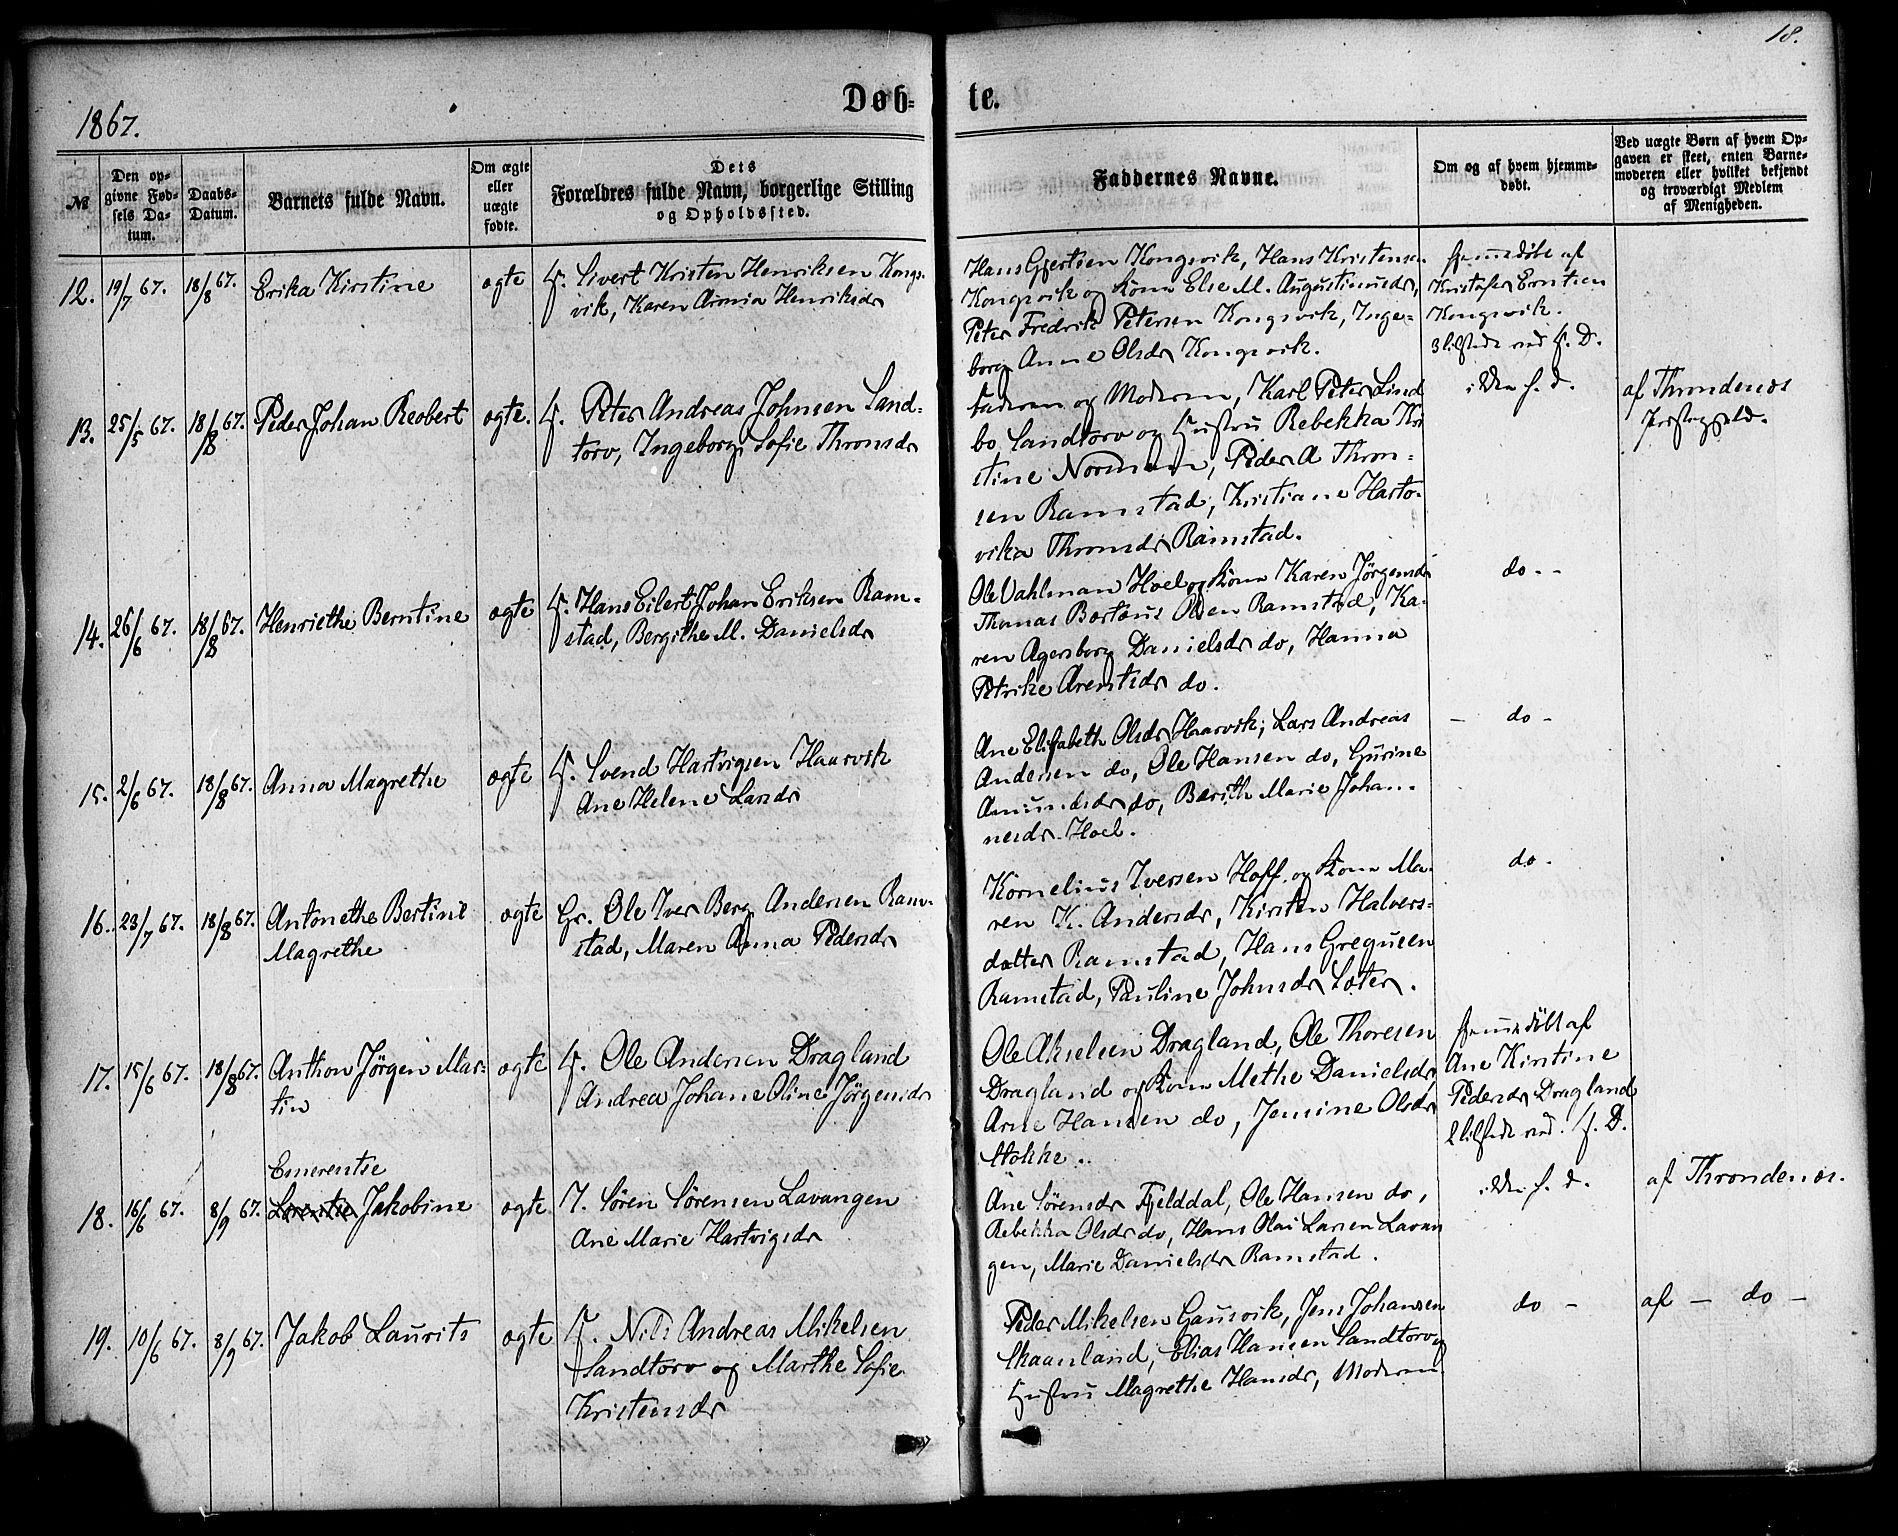 18.
1867.
Døb= te.
№
Den op-
givne Fød-
sels Da-
tum.
Daabs-
Datum.
Barnets fulde Navn.
Om ægte
eller
uægte
fødte.
Dets
Forældres fulde Navn, borgerlige Stilling
og Opholdssted.
Faddernes Navne.
Om og af hvem hjemme-
døbt.
Ved uægte Børn af hvem Op-
gaven er skeet, enten Barne-
moderen eller hvilket bekjendt
og troværdigt Medlem
af Menigheden.
12. 19/7 67. 18/8 67. Erika Kirstine ægte F. Sivert Kristen Henriksen Kongs-
vik, Karen Henriksdr
Hans Gjertsen Kongsvik, Hans Kristensen
Kongsvik og Kone Else M. Augustinusdr,
Peter Fredrik Petersen Kongsvik, Inge-
borg Anne Olsdr Kongsvik.
hjemmedøbt af
Kristofer Erntsen
Kongsvik.
3 tilstede ved H. D.
13. 25/5 67. 18/8 67. Peder Johan Reobert ægte. F. Peter Andreas Johnsen Sand-
torv, Ingeborg Sofie Thronsdr
Faderen og Moderen, Karl Peter Lind
bo Sandtorv og Hustru Rebekka Kri
stine Normann, Peder A Thron-
sen Ramstad, Kristiane Harto-
vika Thronsdr Ramstad.
ikke h. d.
af Throndenæs
Præstegjeld.
14. 26/6 67. 18/8 67. Henriethe Berntine ægte F. Hans Eilert Johan Eriksen Ram-
stad, Bergithe M. Danielsdr
Ole Vahlman Hoel og Kone Karen Jørgensdr
Thomas Bertæus Olsen Ramstad, Ka-
ren Agersborg Danielsdr do, Hanna
Petrike Arentsdr do.
do - -
15. 2/6 67. 18/8 67. Anna Magrethe ægte F. Svend Hartvigsen Haarvik
Ane Helene Larsdr
Ane Elisabeth Olsdr Haarvik, Lars Andreas
Andersen do, Ole Hansen do, Gurine
Amundsdr do, Berith Marie Johan-
nesdr Hoel.
- do -
16. 23/7 67. 18/8 67. Antonethe Bertine
Magrethe
ægte Gr. Ole Iver Berg Andersen Ram-
stad, Maren Anna Pedersdr
Kornelius Iversen Hoff og Kone Ma-
ren K. Andersdr, Kirsten Halvers-
datter Ramstad, Hans Gregusen
Ramstad, Pauline Johnsdr Løter.
do -
17. 15/6 67. 18/8 67. Anthon Jørgen Mar-
tin
ægte F. Ole Andersen Dragland
Andrea Johane Oline Jørgensdr
Ole Akselsen Dragland, Ole Thoresen
Dragland og Kone Methe Danielsdr
Arne Hansen do, Jensine Olsdr
Stokke.
hjemmedøbt af
Ane Kirstine
Pedersdr Dragland
2 tilstede ved H. D.
18. 16/6 67. 8/9 67. Emerentse
Lorentse Jakobine ægte I. Søren Sørensen Lavangen
Ane Marie Hartvigsdr
Ane Sørensdr Fjelddal, Ole Hansen do,
Rebekka Olsdr do, Hans Olai Larsen Lavan
gen, Marie Danielsdr Ramstad.
ikke h. d.
af Throndenæs.
19. 10/6 67. 8/9 67. Jakob Laurits ægte F. Nils Andreas Mikelsen
Sandtorv og Marthe Sofie
Kristensdr
Peder Mikelsen Gausvik, Jens Johansen
Skaanland, Elias Hansen Sandtorv og
Hustru Magrethe Hansdr, Moderen
do -
af - do -